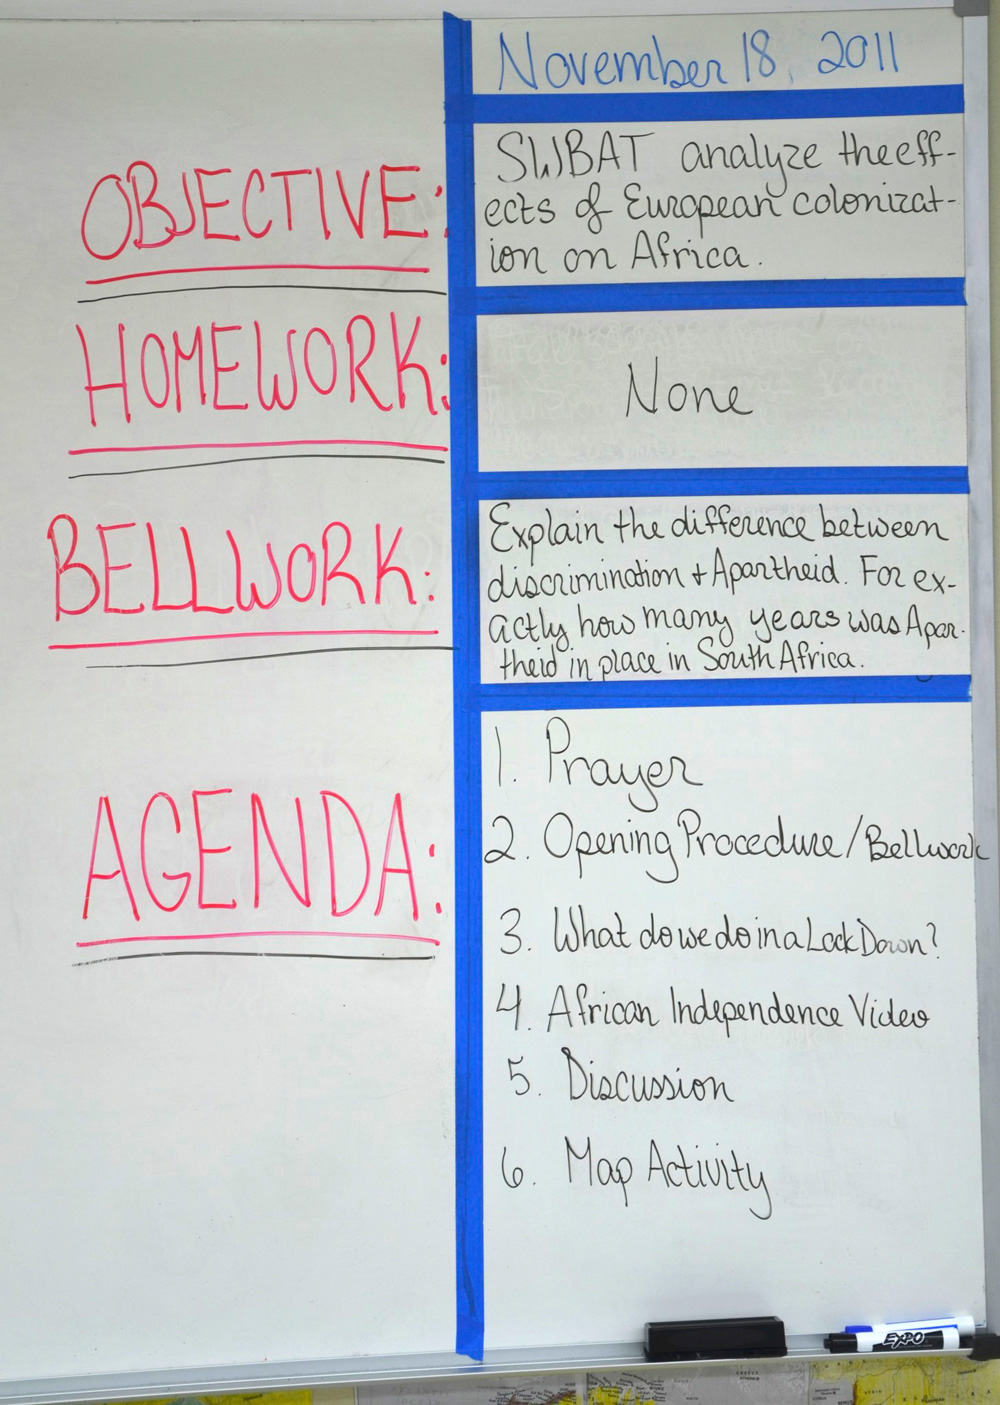 November 18, 2011
OBJECTIVE:
SWBAT analyze the eff-
ects of European colonizat-
ion on Africa.
HOMEWORK:
None
BELLWORK:
Explain the difference between
discrimination + Apartheid. For ex-
actly how many years was Apar-
theid in place in South Africa.
AGENDA:
1. Prayer
2. Opening Procedure/Bellwork
3. What do we do in a Lock Down?
4. African Independence Video
5. Discussion
6. Map Activity
EXPO